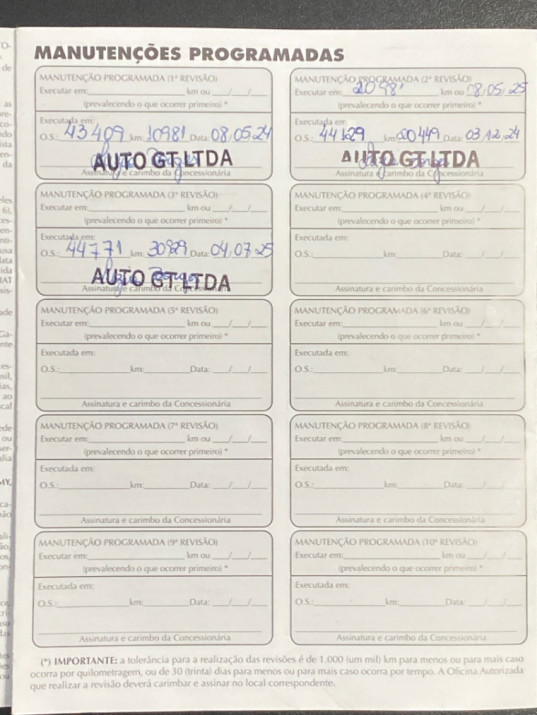 MANUTENÇÕES PROGRAMADAS
MANUTENÇÃO PROGRAMADA (1ª REVISÃO)
Executar em: km ou / /
(prevalecendo o que ocorrer primeiro) *
Executada em:
O.S.: 43409 km: 10981 Data: 08.05.24
AUTO GT LTDA
Assinatura e carimbo da Concessionária
MANUTENÇÃO PROGRAMADA (2ª REVISÃO)
Executar em: 20981 km ou 08/05/25
(prevalecendo o que ocorrer primeiro) *
Executada em:
O.S.: 44129 km: 20449 Data: 03.12.24
AUTO GT LTDA
Assinatura e carimbo da Concessionária
MANUTENÇÃO PROGRAMADA (3ª REVISÃO)
Executar em: km ou / /
(prevalecendo o que ocorrer primeiro) *
Executada em:
O.S.: 44771 km: Data: 04.07.25
AUTO GT LTDA
Assinatura e carimbo da Concessionária
MANUTENÇÃO PROGRAMADA (4ª REVISÃO)
Executar em: km ou / /
(prevalecendo o que ocorrer primeiro) *
Executada em:
O.S.: km: Data: / /
Assinatura e carimbo da Concessionária
MANUTENÇÃO PROGRAMADA (5ª REVISÃO)
Executar em: km ou / /
(prevalecendo o que ocorrer primeiro) *
Executada em:
O.S.: km: Data: / /
Assinatura e carimbo da Concessionária
MANUTENÇÃO PROGRAMADA (6ª REVISÃO)
Executar em: km ou / /
(prevalecendo o que ocorrer primeiro) *
Executada em:
O.S.: km: Data: / /
Assinatura e carimbo da Concessionária
MANUTENÇÃO PROGRAMADA (7ª REVISÃO)
Executar em: km ou / /
(prevalecendo o que ocorrer primeiro) *
Executada em:
O.S.: km: Data: / /
Assinatura e carimbo da Concessionária
MANUTENÇÃO PROGRAMADA (8ª REVISÃO)
Executar em: km ou / /
(prevalecendo o que ocorrer primeiro) *
Executada em:
O.S.: km: Data: / /
Assinatura e carimbo da Concessionária
MANUTENÇÃO PROGRAMADA (9ª REVISÃO)
Executar em: km ou / /
(prevalecendo o que ocorrer primeiro) *
Executada em:
O.S.: km: Data: / /
Assinatura e carimbo da Concessionária
MANUTENÇÃO PROGRAMADA (10ª REVISÃO)
Executar em: km ou / /
(prevalecendo o que ocorrer primeiro) *
Executada em:
O.S.: km: Data: / /
Assinatura e carimbo da Concessionária
(*) IMPORTANTE: a tolerância para a realização das revisões é de 1.000 (um mil) km para menos ou para mais caso
ocorra por quilometragem, ou de 30 (trinta) dias para menos ou para mais caso ocorra por tempo. A Oficina Autorizada
que realizar a revisão deverá carimbar e assinar no local correspondente.